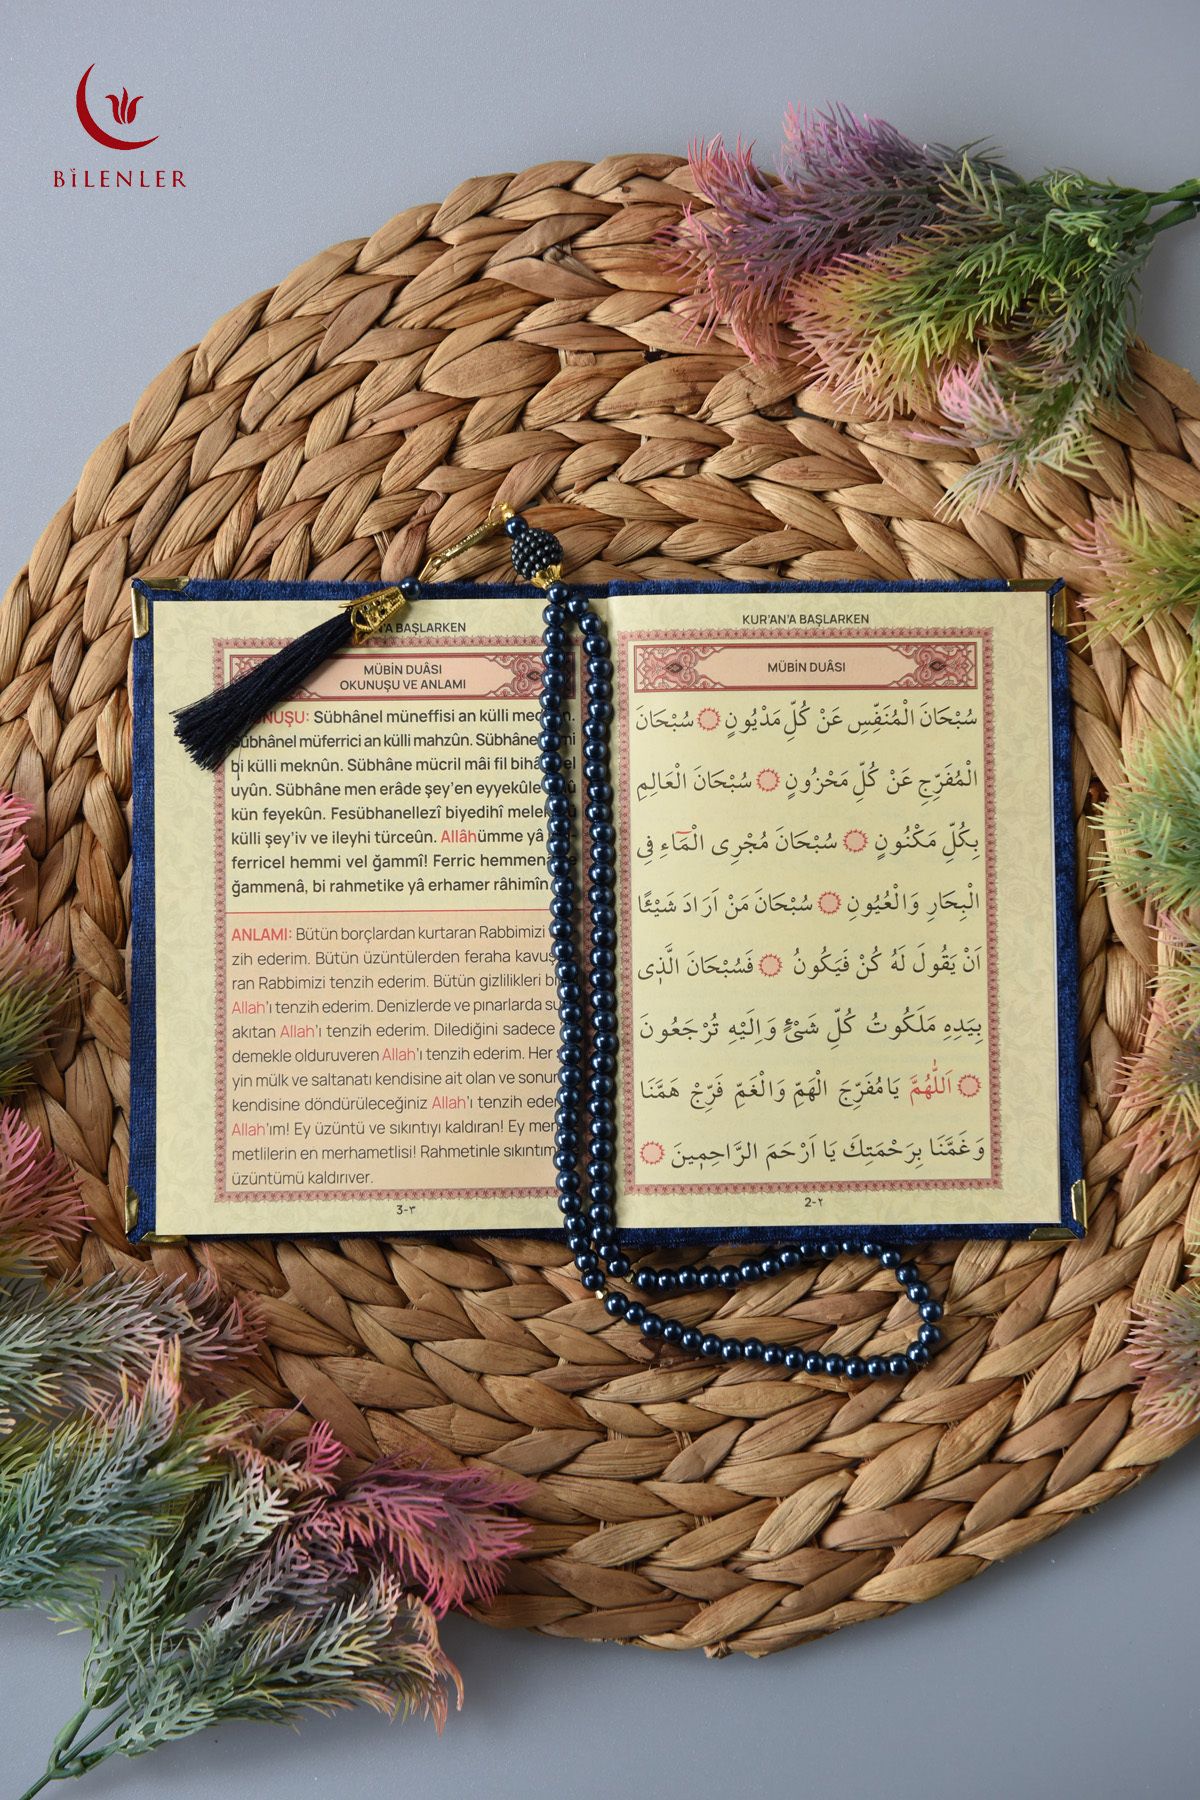 BİLENLER
'A BAŞLARKEN
MÜBİN DUÂSI
OKUNUŞU VE ANLAMI
Sübhânel müneffisi an külli
Sübhânel müferrici an külli mahzûn.
bi külli meknûn. Sübhâne mücril mâi fil
uyûn. Sübhâne men erâde şey'en
kün feyekûn. Fesübhanellezî biyedihî
külli şey'iv ve ileyhi türceûn. Allâhümme yâ
ferricel hemmi vel ğammî! Ferric
ğammenâ, bi rahmetike yâ erhamer râhimîn.
ANLAMI: Bütün borçlardan kurtaran Rabbimizi
zih ederim. Bütün üzüntülerden feraha
ran Rabbimizi tenzih ederim. Bütün gizlilikleri
Allah'ı tenzih ederim. Denizlerde ve pınarlarda
akıtan Allah'ı tenzih ederim. Dilediğini sadece
demekle olduruveren Allah'ı tenzih ederim. Her
yin mülk ve saltanatı kendisine ait olan ve
kendisine döndürüleceğiniz Allah'ı tenzih
Allah'ım! Ey üzüntü ve sıkıntıyı kaldıran! Ey
metlilerin en merhametlisi! Rahmetinle
üzüntümü kaldırıver.
3-٣
KUR'AN'A BAŞLARKEN
MÜBİN DUÂSI
سُبْحَانَ الْمُنَفِّسِ عَنْ كُلِّ مَدْيُونٍ سُبْحَانَ
الْمُفَرِّجِ عَنْ كُلِّ مَحْزُونٍ سُبْحَانَ الْعَالِمِ
بِكُلِّ مَكْنُونٍ سُبْحَانَ مُجْرِى الْمَٓاءِ فِى
الْبِحَارِ وَالْعُيُونِ سُبْحَانَ مَنْ اَرَادَ شَيْئًا
اَنْ يَقُولَ لَهُ كُنْ فَيَكُونُ فَسُبْحَانَ الَّذِى
بِيَدِهِ مَلَكُوتُ كُلِّ شَىْءٍ وَاِلَيْهِ تُرْجَعُونَ
اَللّٰهُمَّ يَامُفَرِّجَ الْهَمِّ وَالْغَمِّ فَرِّجْ هَمَّنَا
وَغَمَّنَا بِرَحْمَتِكَ يَا اَرْحَمَ الرَّاحِمِينَ
2-٢